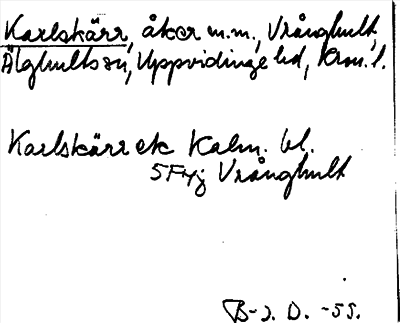 Karlskärr, åker m.m., Vrånghult,
Älghults sn, Uppvidinge hd, Kron. l.
Karlskärr etc Kalm. bl.
5 F 4j Vrånghult
B-J. D. -55.